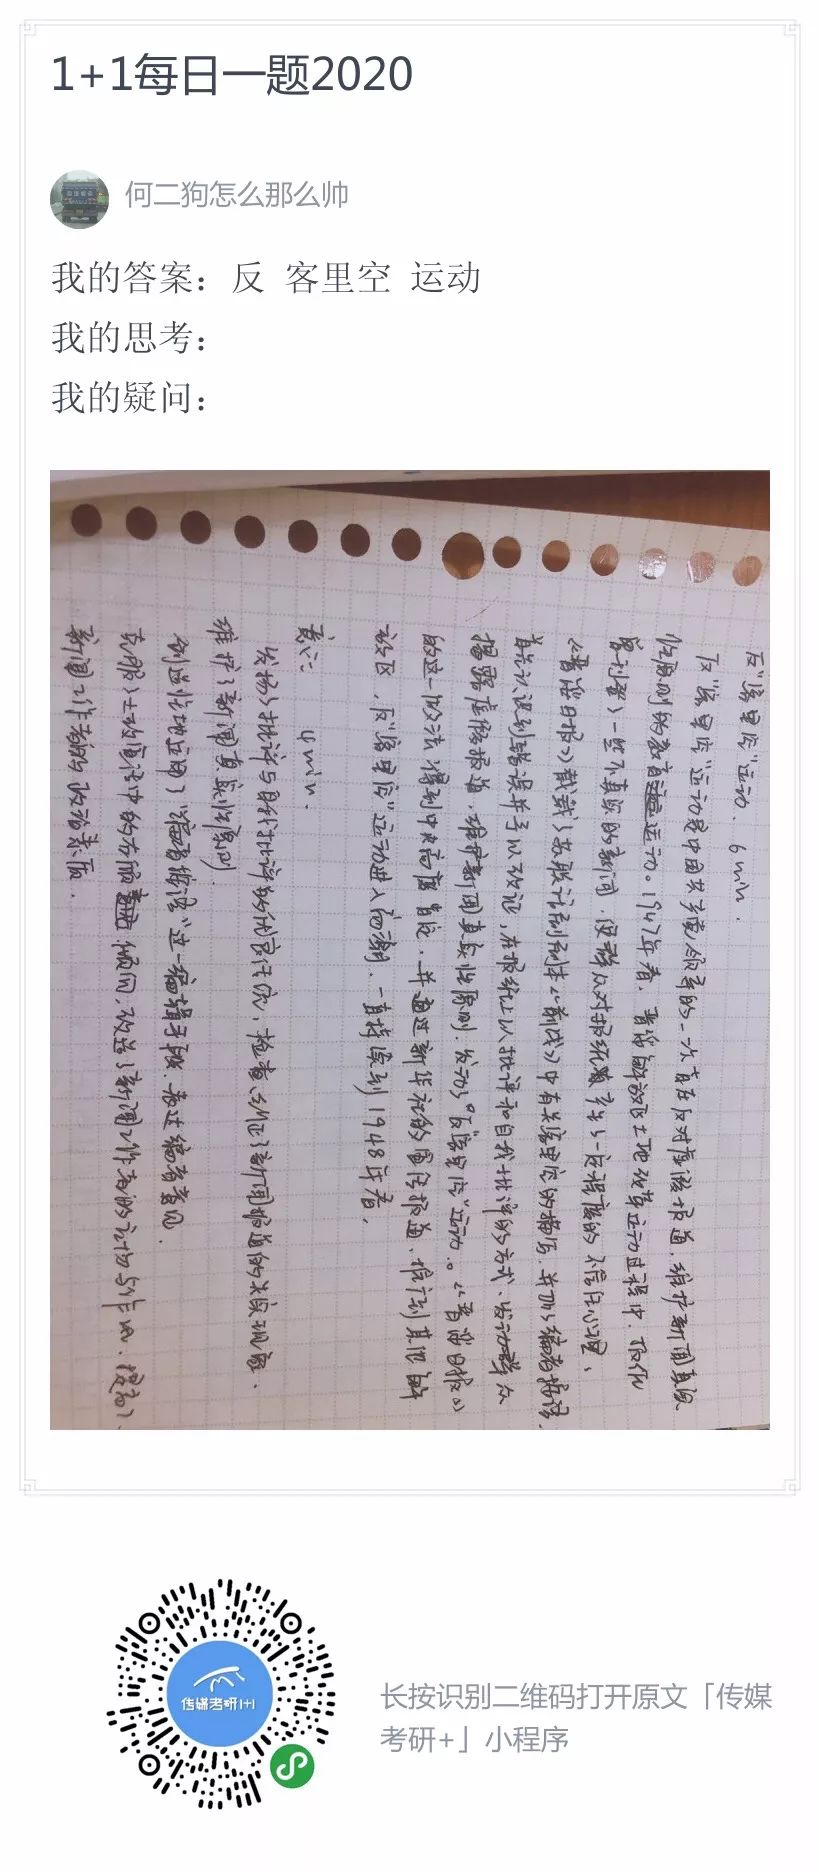 1+1每日一题2020
何二狗怎么那么帅
我的答案：反 客里空 运动
我的思考：
我的疑问：
反“客里空”运动． 6min．
反“客里空”运动是中国共产党领导的一次旨在反对虚假报道，维护新闻真实
性原则的教育运动。1947年春，晋绥解放区土地改革运动过程中，
一些不真实的新闻，使群众对报纸产生了一定程度的不信任心理，
《晋绥日报》载了苏联话剧剧本《前线》中有关客里空的描写，并加了编者按语，
认识到错误并予以改正，在报纸上以批评和自我批评的方式，发动群众
揭露虚假报道，维护新闻真实性原则．发动了“反客里空”运动。《晋绥日报》
的这一做法得到中央高度肯定．并通过新华社的宣传报道，推广到其他解
放区，反“客里空”运动进入高潮．一直持续到1948年春．
意义： 4min．
发扬了批评与自我批评的优良作风，检查纠正了新闻报道的失实现象．
维护了新闻真实性原则．
创造性地运用了“编者按语”这一编辑手段．表达编者意见．
克服了土改宣传中的右倾倾向，改进了新闻工作者的
新闻工作者的政治素质．
传媒考研1+1
长按识别二维码打开原文「传媒
考研+」小程序